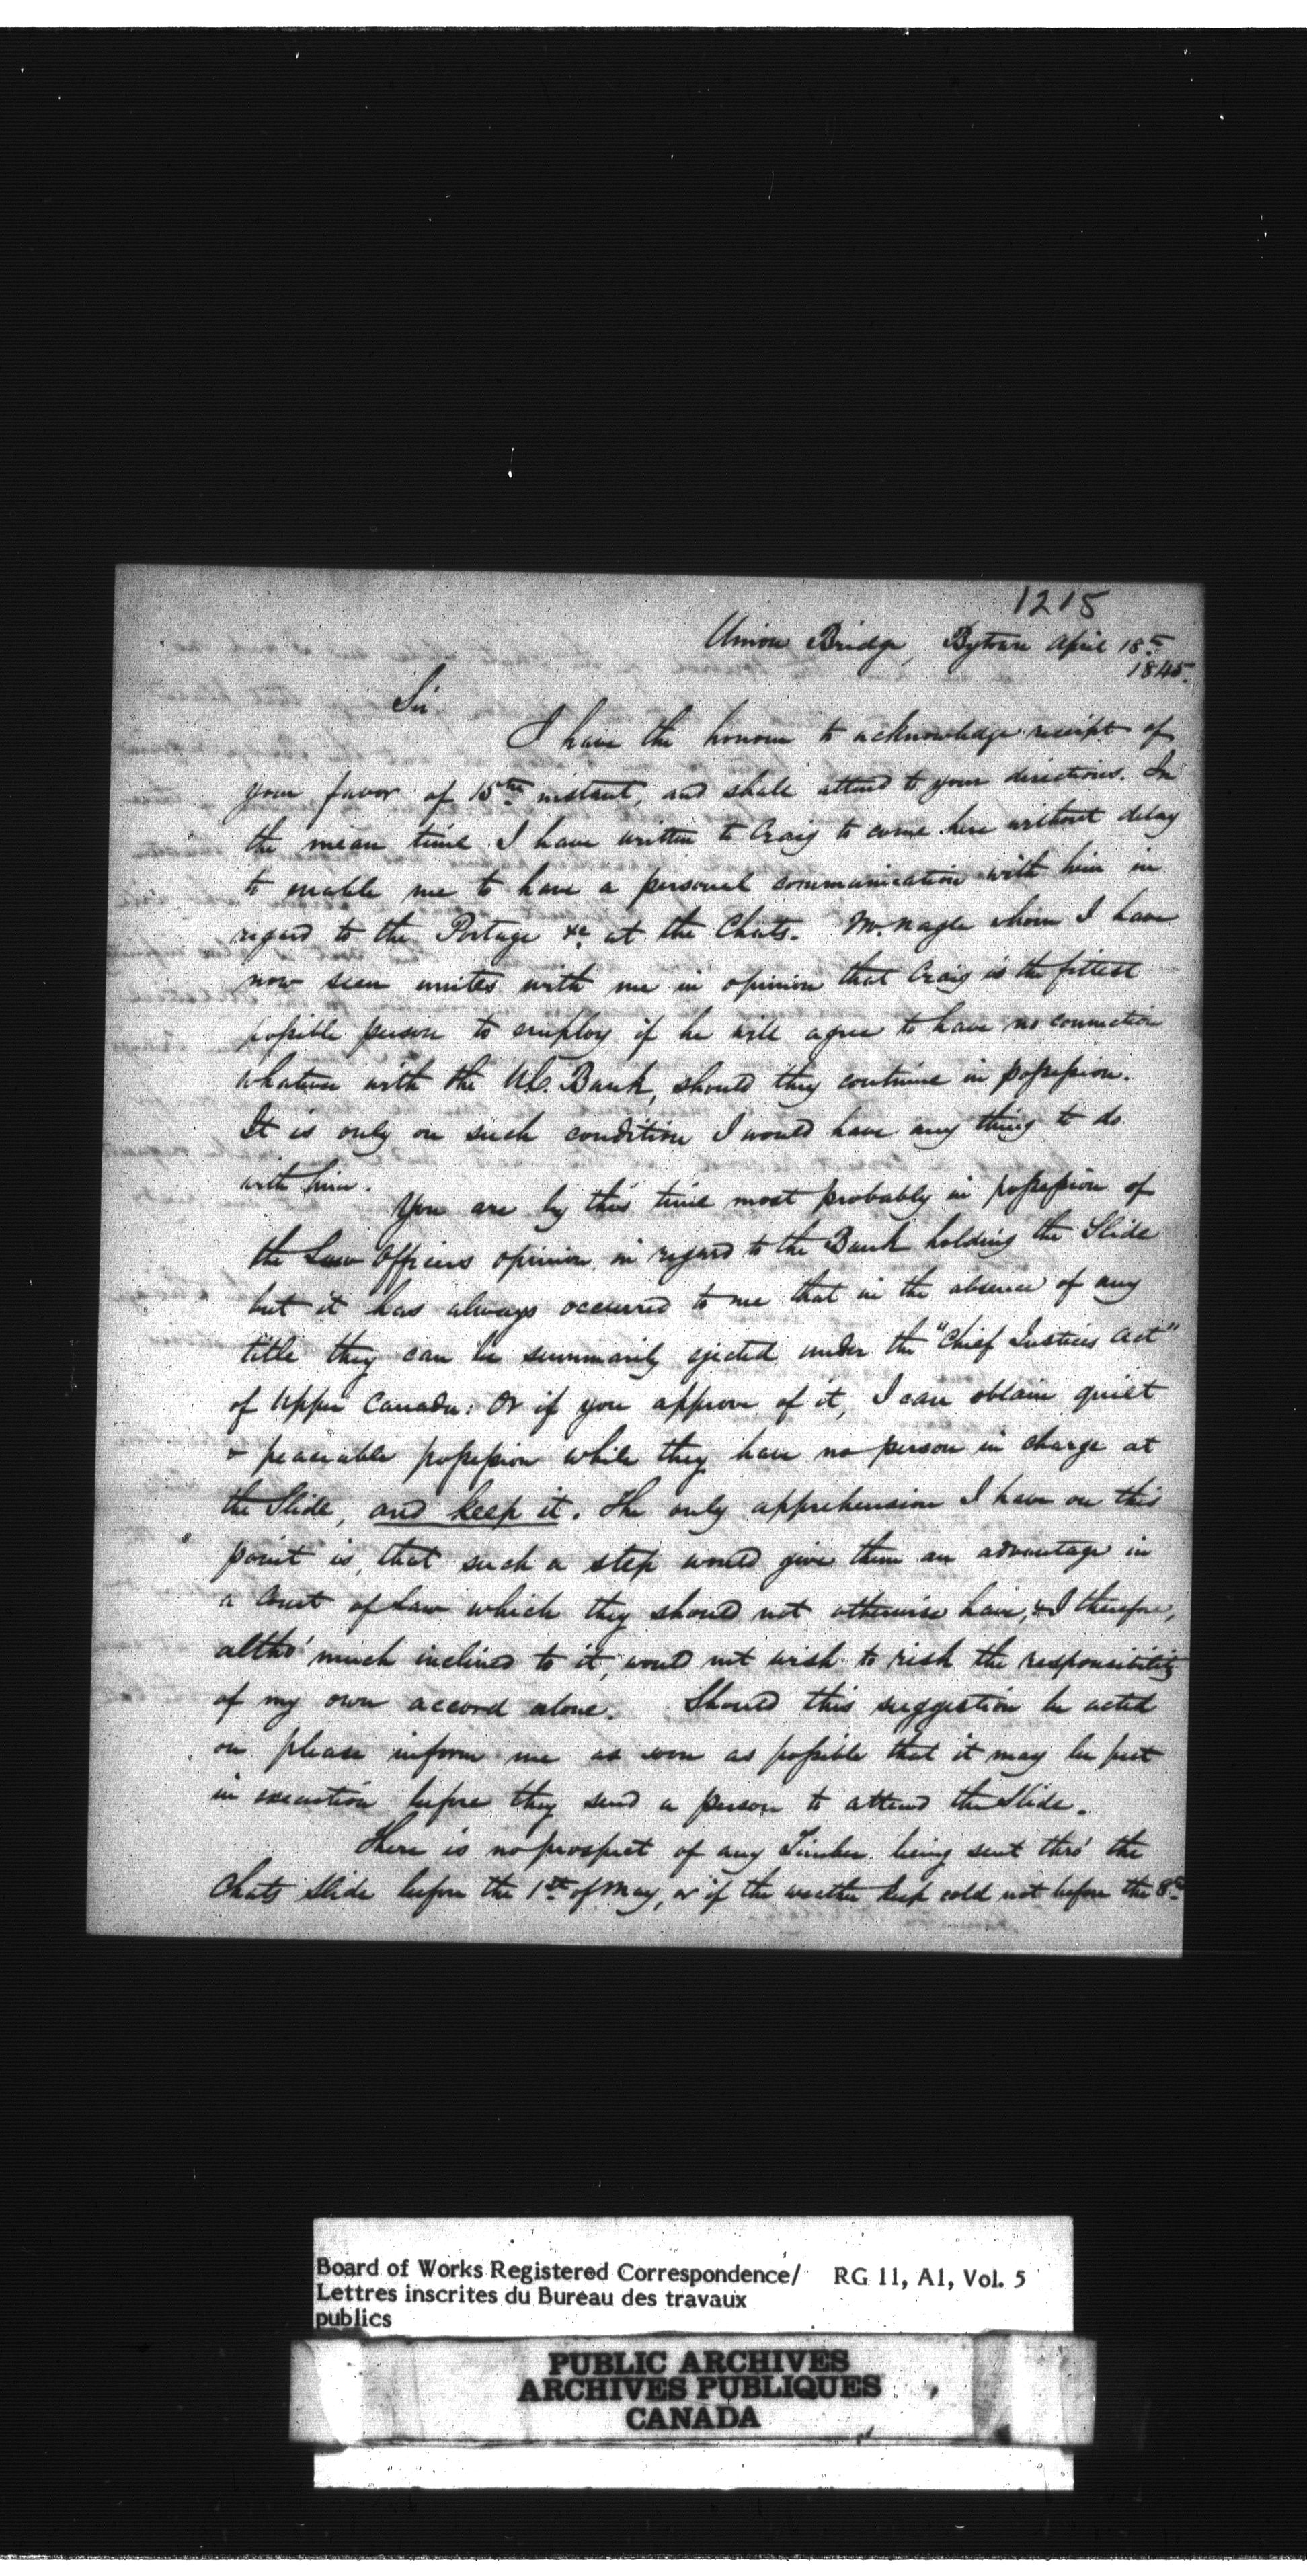 1215
Union Bridge, Bytown April 18th
1845.
Sir
I have the honour to acknowledge receipt of
your favor of 15th instant, and shall attend to your directions. In
the mean time I have written to Craig to come here without delay
to enable me to have a personal communication with him in
regard to the Portage &c at the Chats. Mr. Nagle whom I have
now seen unites with me in opinion that Craig is the fittest
possible person to employ if he will agree to have no connection
whatever with the U.C. Bank, should they continue in possession.
It is only on such condition I would have any thing to do
with him.
You are by this time most probably in possession of
the Law Officers opinion in regard to the Bank holding the Slide
but it has always occurred to me that in the absence of any
title they can be summarily ejected under the "Chief Justices Act"
of Upper Canada: Or if you approve of it, I can obtain quiet
& peaceable possession while they have no person in charge at
the Slide, and keep it. The only apprehension I have on this
point is, that such a step would give them an advantage in
a Court of Law which they should not otherwise have, & I therefore,
altho' much inclined to it, would not wish to risk the responsibility
of my own accord alone. Should this suggestion be acted
on please inform me as soon as possible that it may be put
in execution before they send a person to attend the Slide.
There is no prospect of any Timber being sent thro' the
Chats Slide before the 1st of May, or if the weather keep cold not before the 8th
Board of Works Registered Correspondence/ RG 11, A1, Vol. 5
Lettres inscrites du Bureau des travaux
publics
PUBLIC ARCHIVES
ARCHIVES PUBLIQUES
CANADA